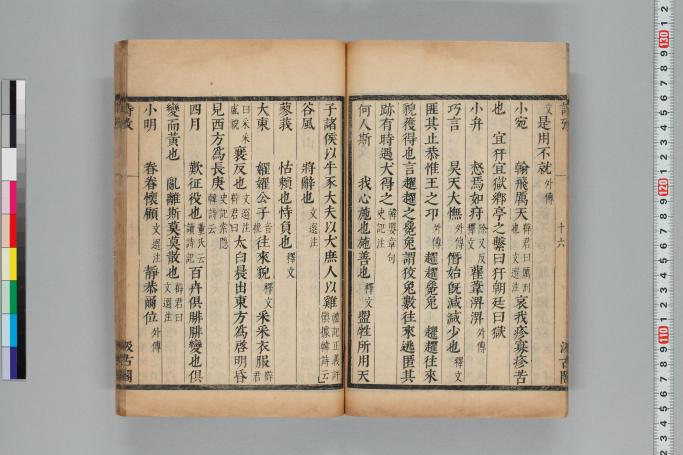 文是用不就外傳
小宛 翰飛厲天薛君曰厲附也文選注哀我疹寡疹苦
也 宜犴宜獄鄉亭之繫曰犴朝廷曰獄
小弁 惄焉如疛釋文除又反雚葦淠淠外傳
巧言 昊天大憮外傳僭始旣減減少也釋文
匪其止恭惟王之卭外傳 趯趯毚兔 趯趯往來
貌獲得也言趯趯之毚兔謂狡兔數往來逃匿其
跡有時遇犬得之史記注
何人斯 我心施也施善也釋文 盟牲所用天
子諸侯以牛豕大夫以犬庶人以雞禮記正義
谷風 將辭也文選注
蓼莪 怙賴也恃負也釋文
大東 嬥嬥公子往來貌釋文 釆釆衣服薛君
曰釆釆盛貌文選注 襄反也薛君曰 太白晨出東方爲啓明昏
見西方爲長庚史記索隱
四月 歎征役也董氏云讀詩記 百卉俱腓腓變也俱
變而黃也 亂離斯莫莫散也薛君曰文選注
小明 眷眷懷顧文選注 靜恭爾位外傳
詩攷
十六
汲古閣